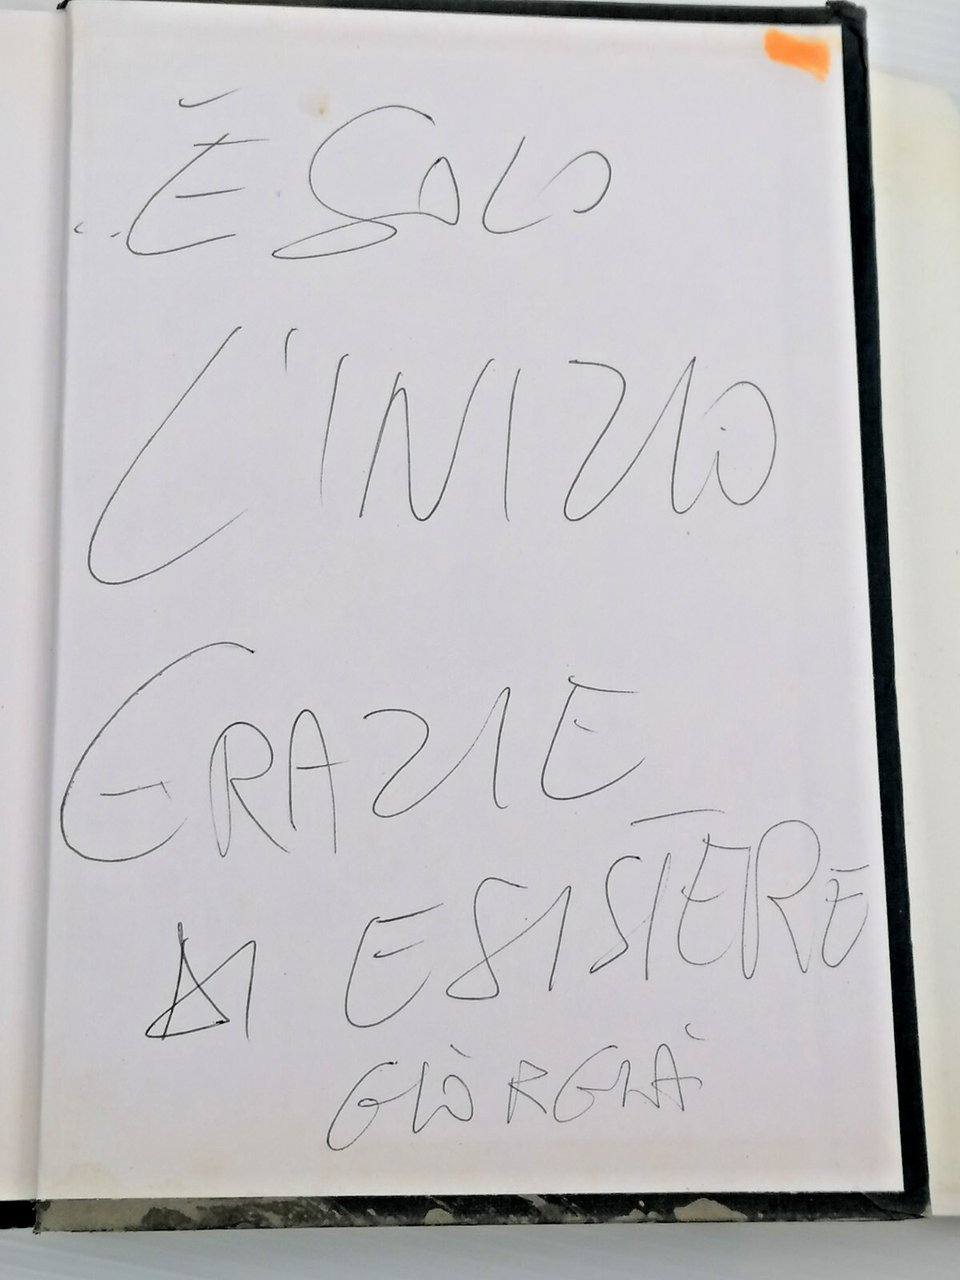 ..È SOLO
L'INIZIO
GRAZIE
DI ESISTERE
GIORGIA